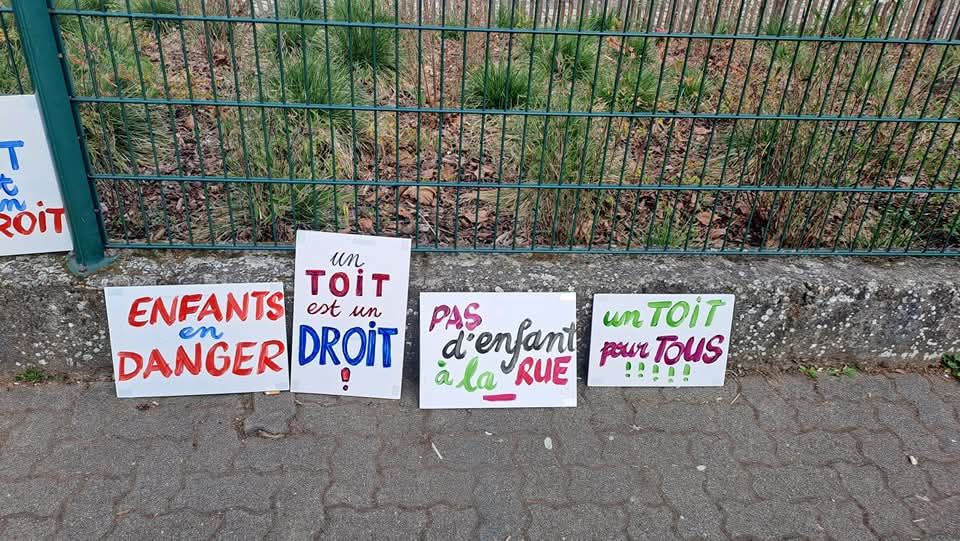 T
et
en
ROIT
ENFANTS
en
DANGER
un
TOIT
est un
DROIT
!
PAS
d'enfant
à la RUE
un TOIT
pour TOUS
!!!!!